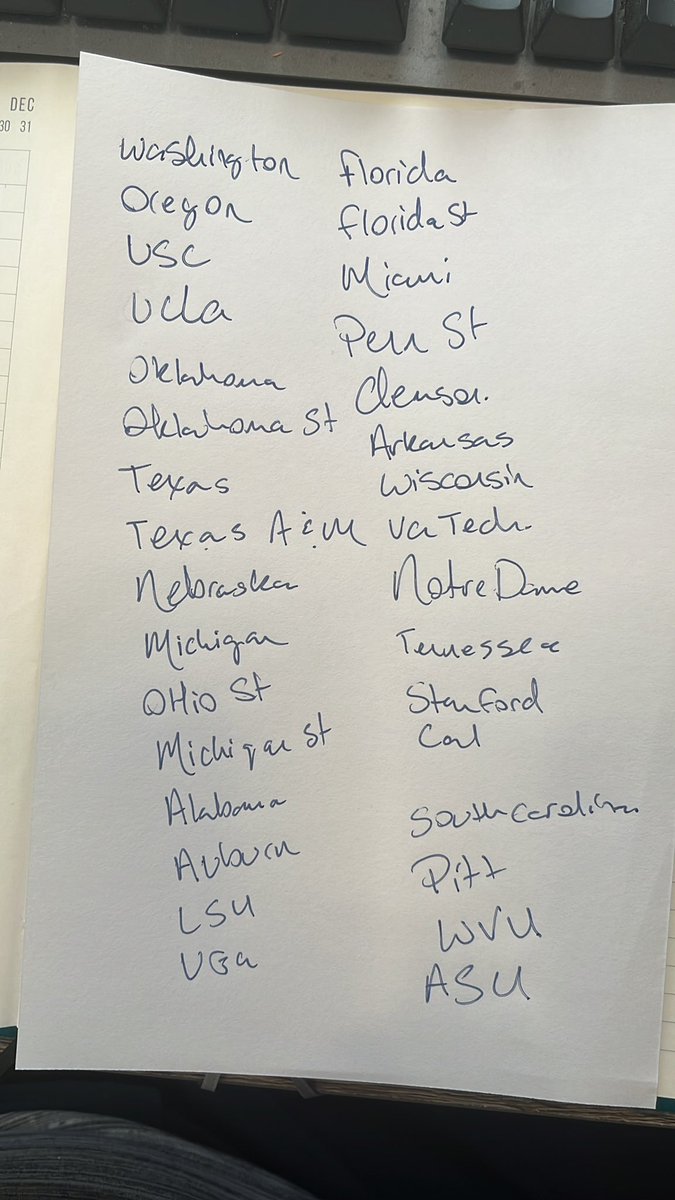 DEC
30 31
Washington
Oregon
USC
UCLA
Oklahoma
Oklahoma St
Texas
Texas A&M
Nebraska
Michigan
OHio St
Michigan St
Alabama
Auburn
LSU
UGA
Florida
Florida St
Miami
Penn St
Clemson.
Arkansas
Wisconsin
Va Tech.
Notre Dame
Tennessee
Stanford
Cal
South Carolina
Pitt
WVU
ASU